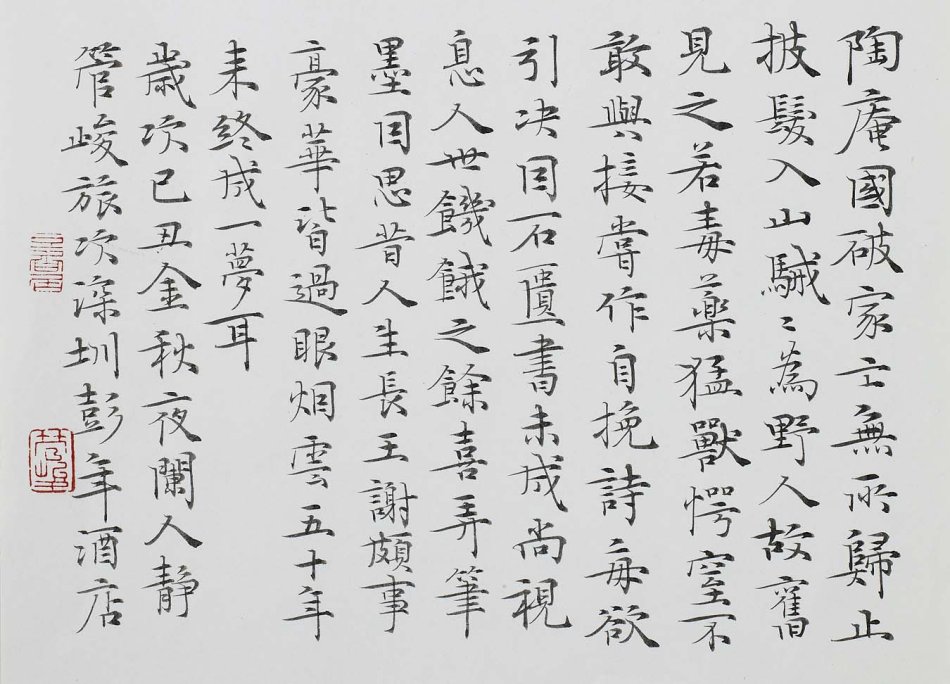 陶庵國破家亡無所歸止
披髮入山駴〻為野人故舊
見之若毒藥猛獸愕窒不
敢與接嘗作自挽詩每欲
引決因石匱書未成尚視
息人世饑餓之餘喜弄筆
墨因思昔人生長王謝頗事
豪華皆過眼烟雲五十年
来終成一夢耳
歲次己丑金秋夜闌人靜
管峻旅次深圳彭年酒店